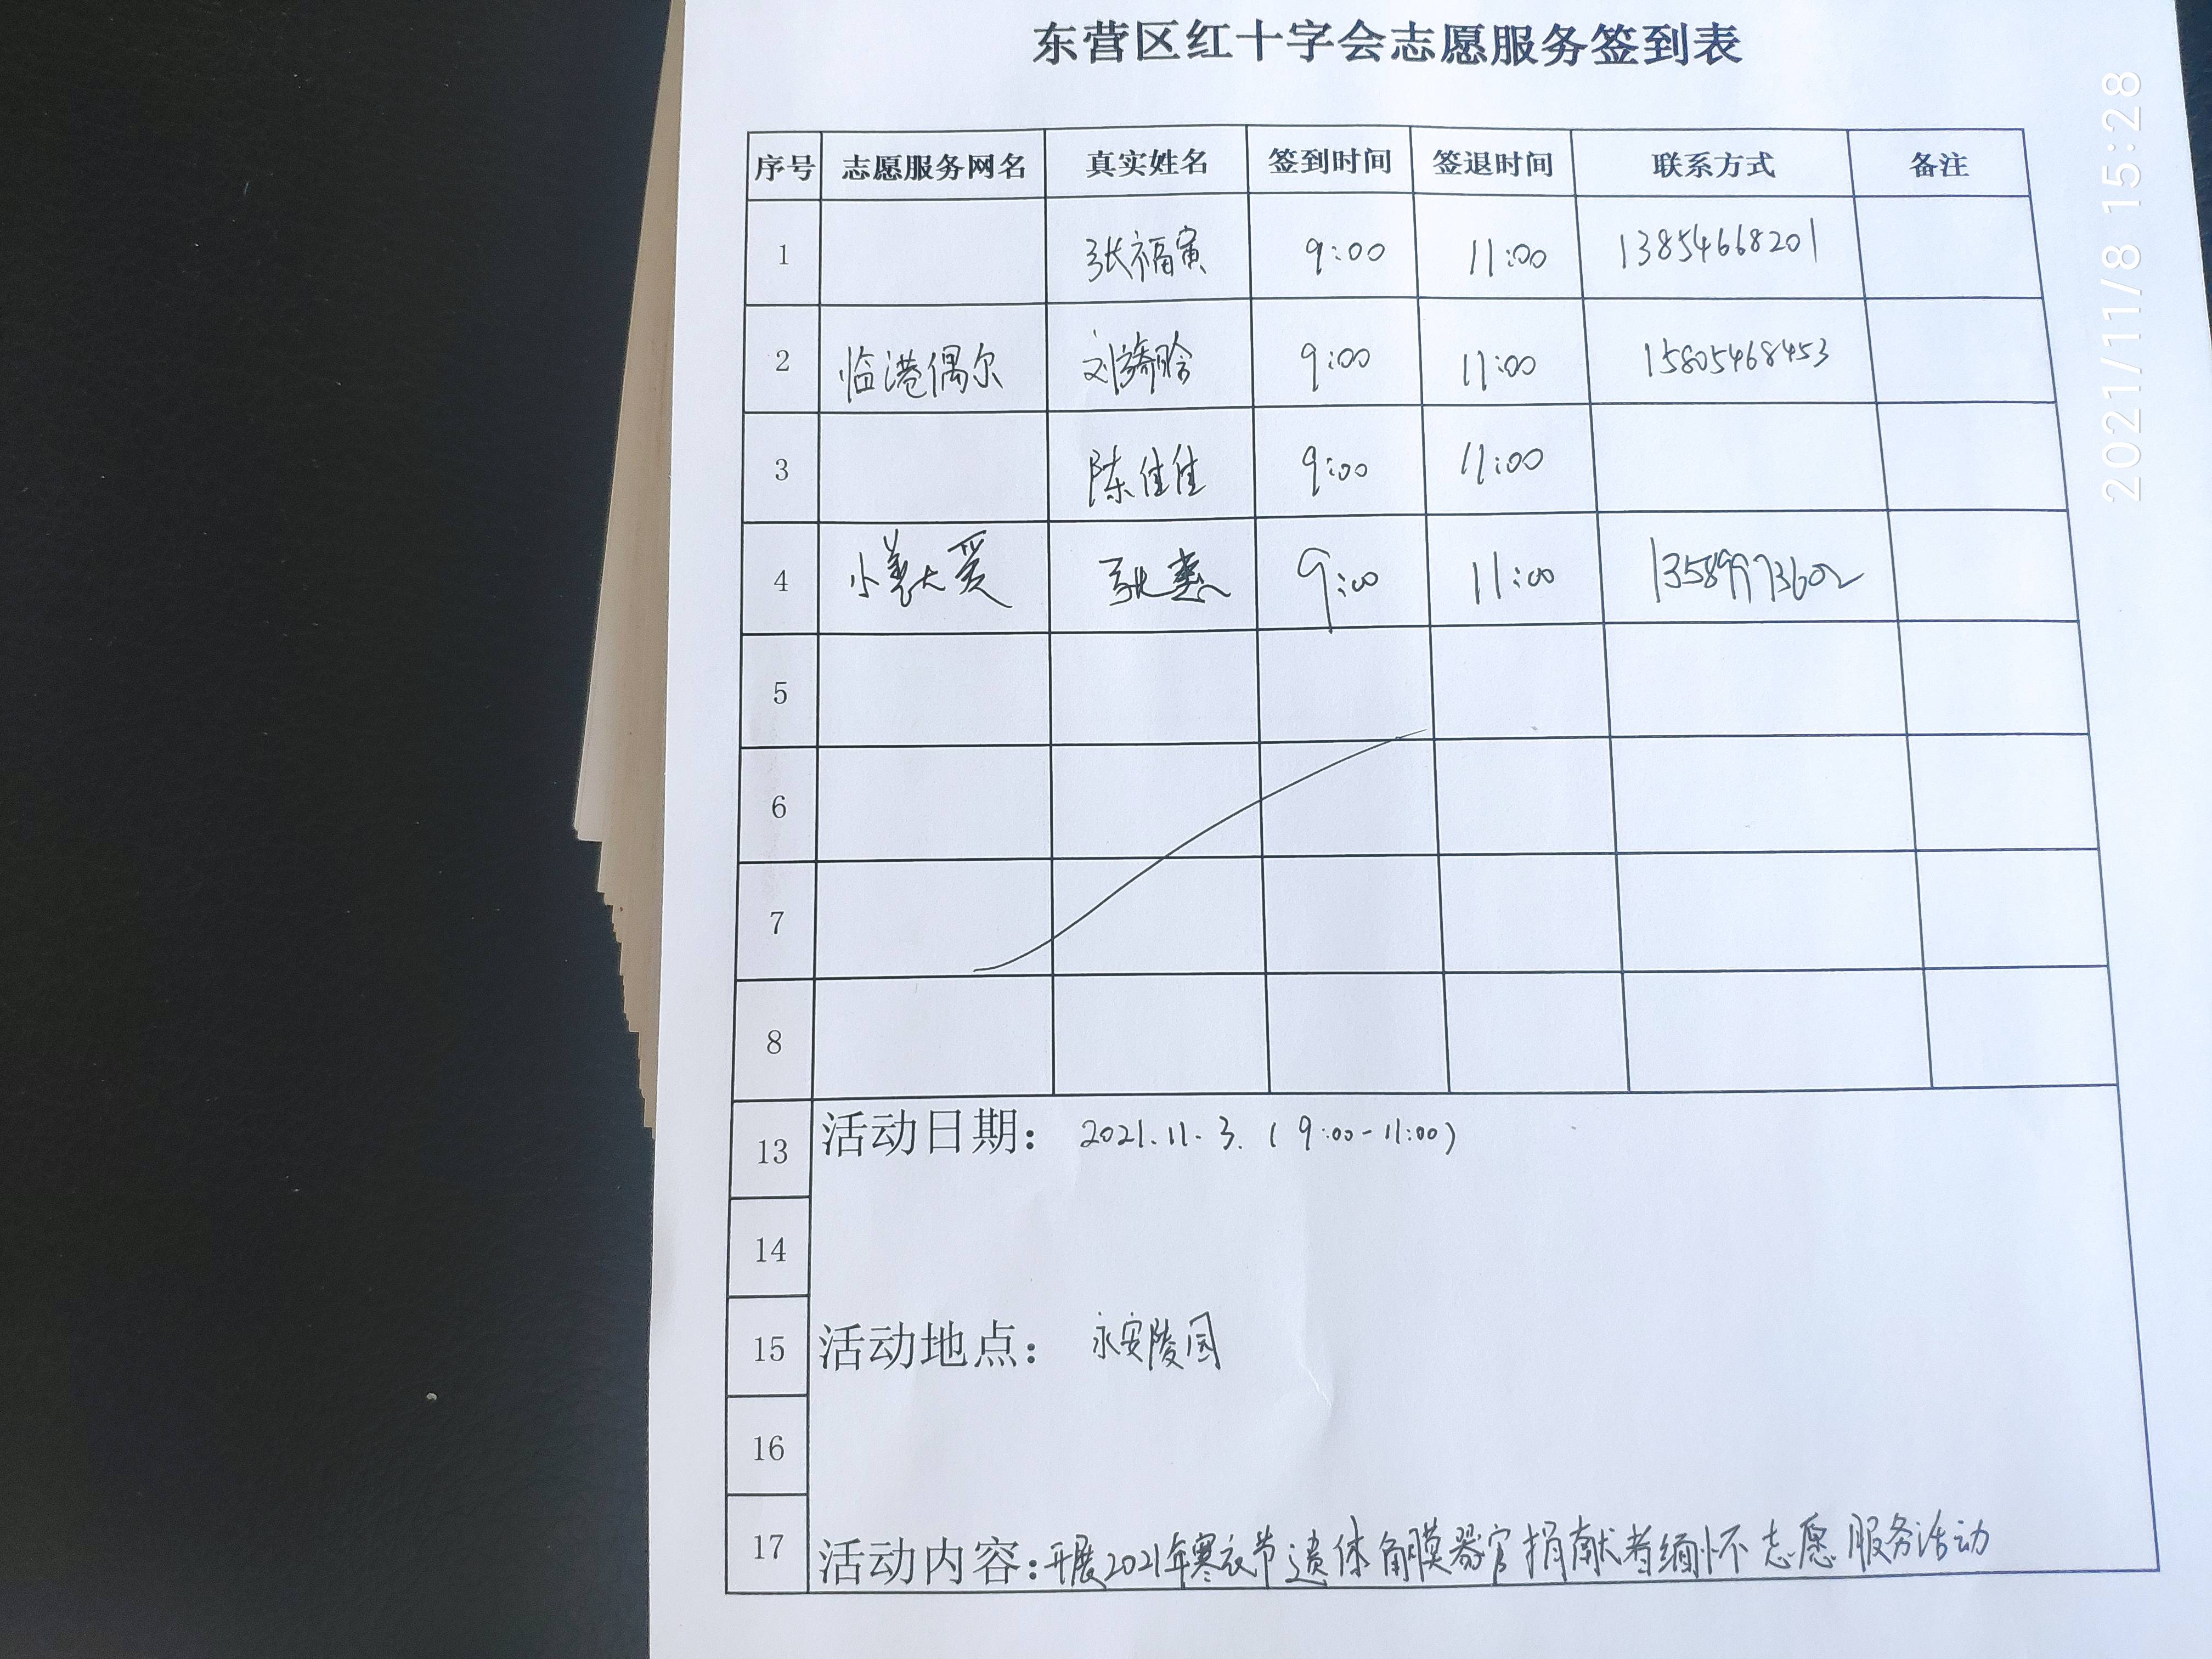 东营区红十字会志愿服务签到表
序号 志愿服务网名 真实姓名 签到时间 签退时间 联系方式 备注
1 张福寅 9:00 11:00 13854668201
2 临港偶尔 刘 9:00 11:00 15805468453
3 陈佳佳 9:00 11:00
4 小善大爱 张燕 9:00 11:00 13589973602
5
6
7
8
13 活动日期: 2021.11.3.(9:00-11:00)
14
15 活动地点: 永安陵园
16
17 活动内容:开展2021年寒衣节遗体角膜器官捐献者缅怀志愿服务活动
2021/11/8 15:28